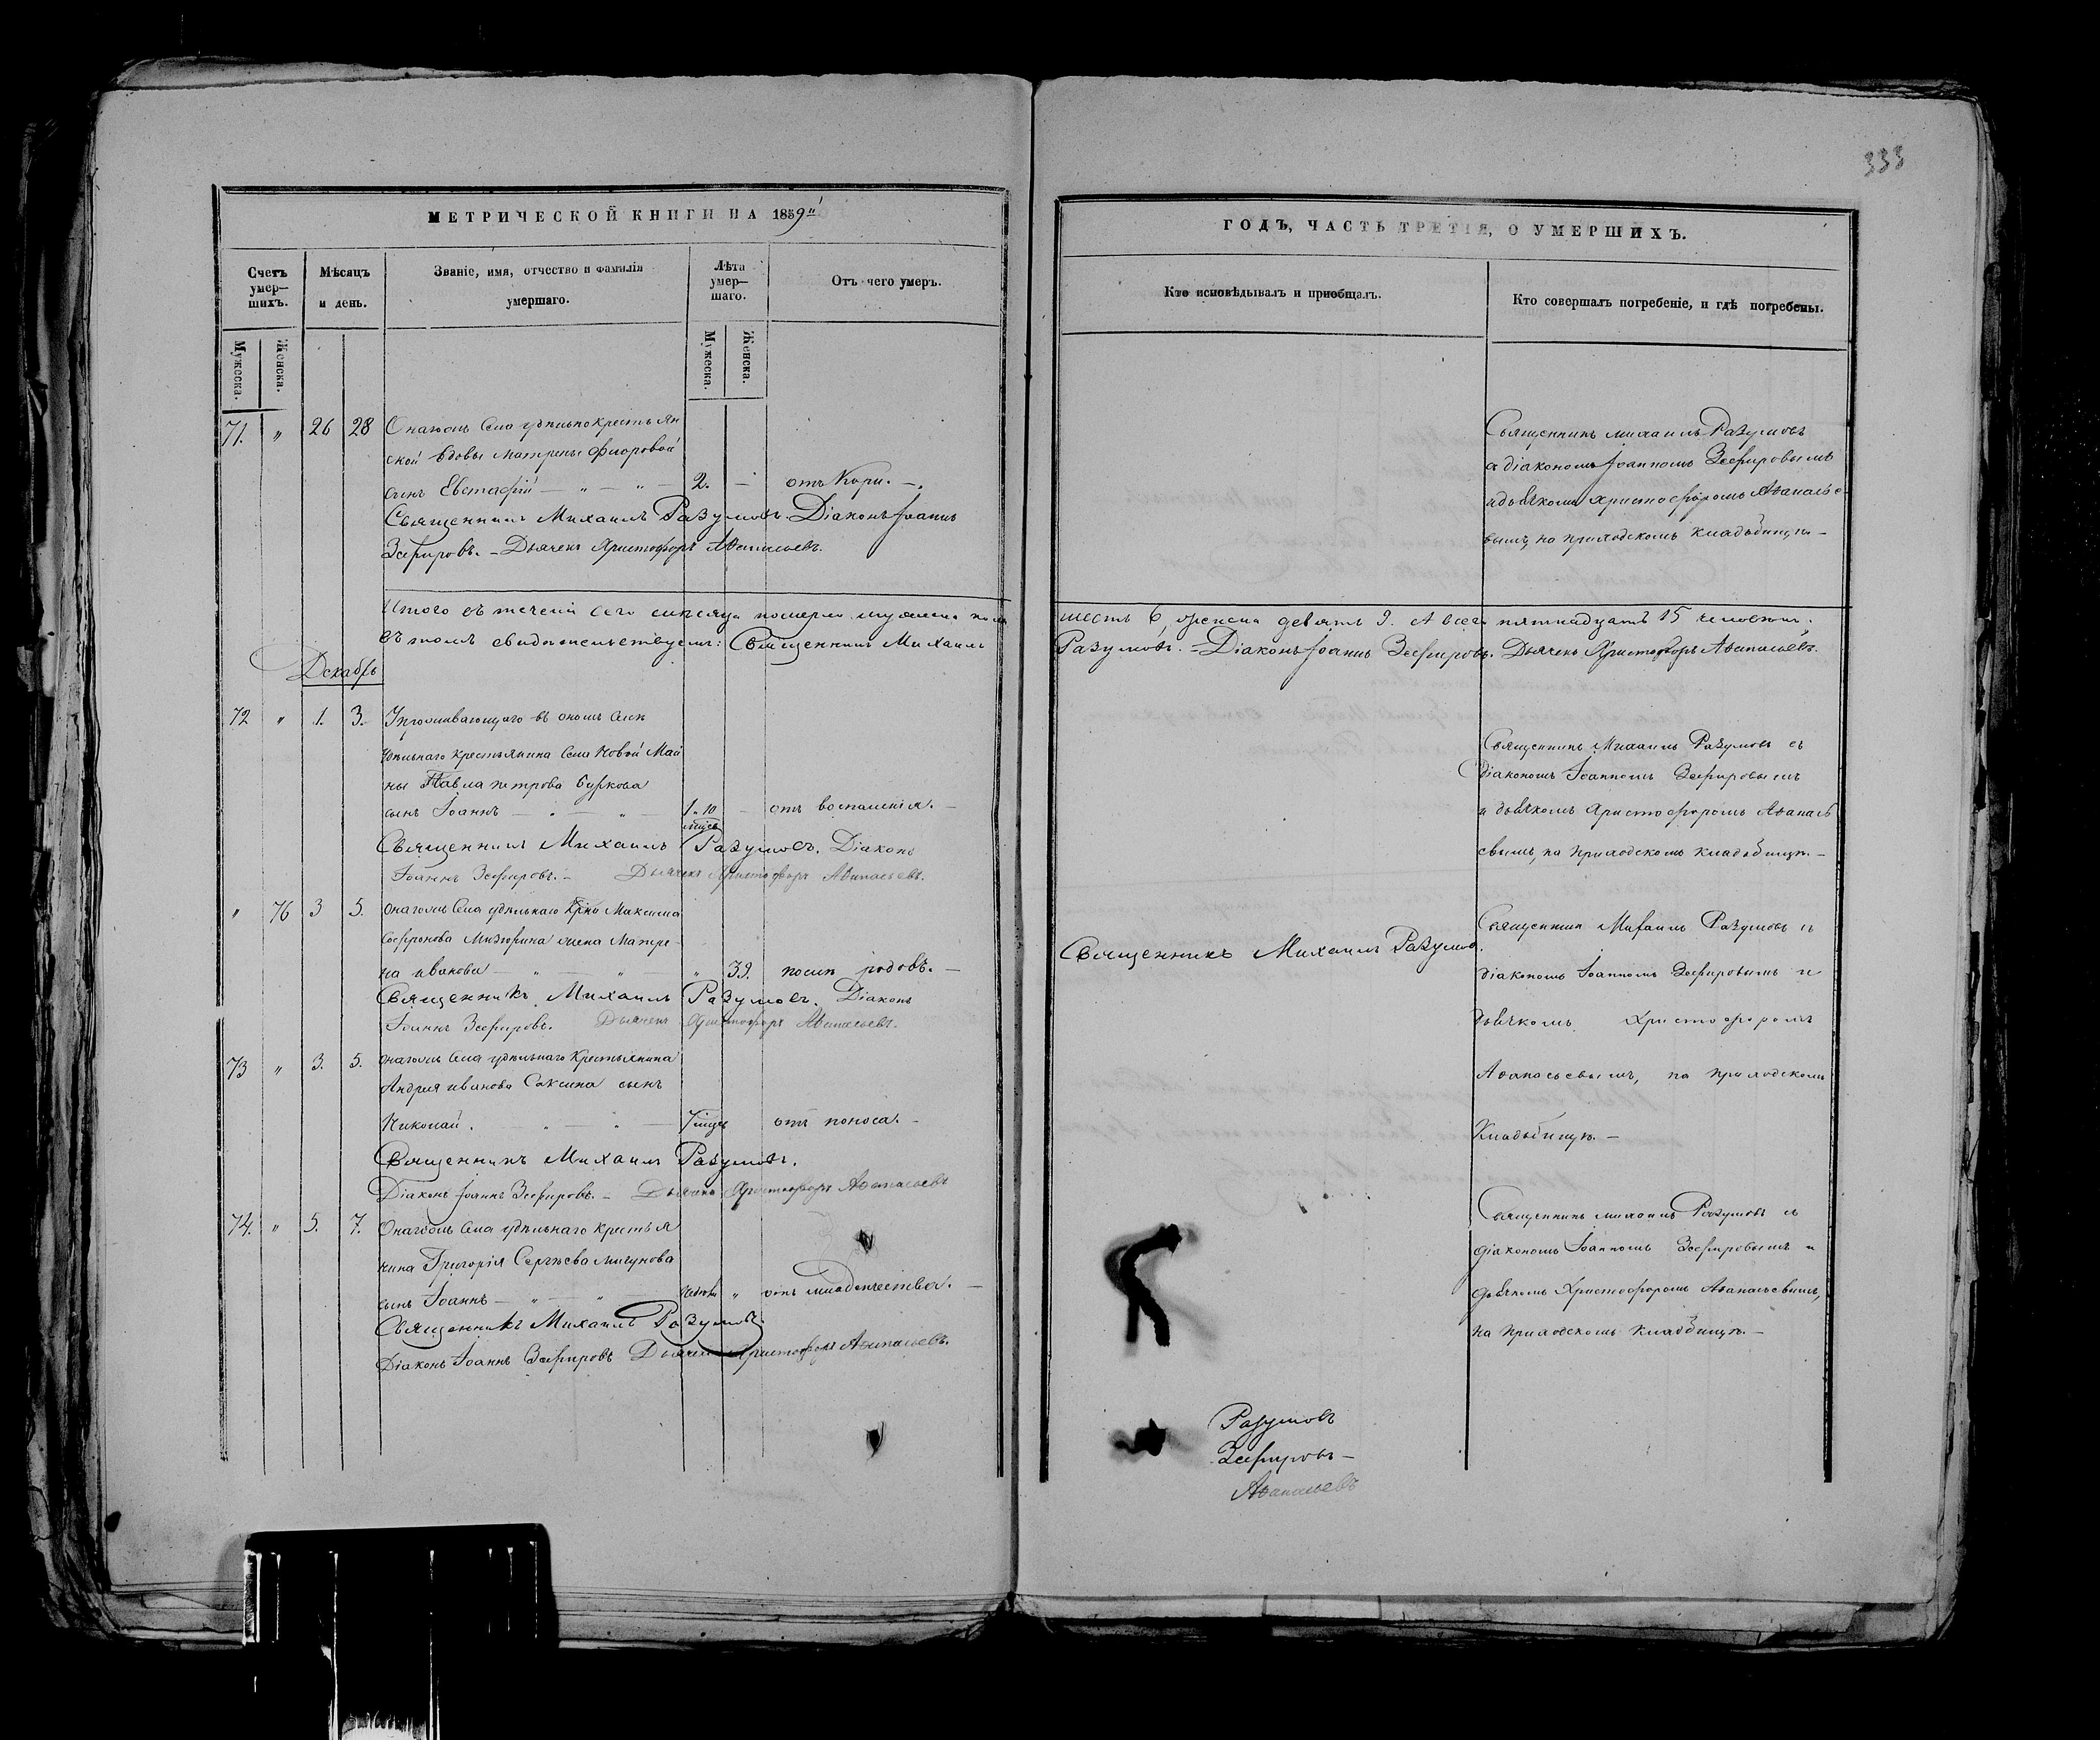 333
МЕТРИЧЕСКОЙ КНИГИ НА 1859й
Счетъ умер—шихъ.
Мѣсяцъ и день.
Званіе, имя, отчество и фамилія умершаго.
Лѣта умер—шаго.
Отъ чего умеръ.
Мужеска.
Женска.
Мужеска.
Женска.
71. " 26 28 Онагожъ Села удѣльно крестьян
ской вдовы Матрены Флоровой
сынъ Евстафій — " — " — 2. — отъ Кори. —
Священникъ Михаилъ Разумовъ. Діаконъ Іоаннъ
Зефировъ. — Дьячекъ Христофоръ Аѳанасьевъ.
Итого въ теченіи сего мѣсяца померло мужеска пола
въ томъ свидѣтельствуемъ: Священникъ Михаилъ
Декабрь
72 " 1. 3. Проживающаго въ ономъ селѣ
удѣльнаго крестьянина Села Новой Май
ны Павла Петрова Буркова
сынъ Іоаннъ — " — " — 1. 10 мѣсц — отъ воспаленія. —
Священникъ Михаилъ Разумовъ. Діаконъ
Іоаннъ Зефировъ. — Дьячекъ Христофоръ Аѳанасьевъ.
" 76 3 5. Онагожъ Села удѣльнаго Крѣна Максима
Софронова Мизюрина жена Матре-
на Иванова — " — " " 39. послѣ родовъ. —
Священникъ Михаилъ Разумовъ. Діаконъ
Іоаннъ Зефировъ. Дьячекъ Христофоръ Аѳанасьевъ.
73 " 3. 5. Онагожъ Села удѣльнаго Крестьянина
Андрея Иванова Саксина сынъ
Николай. — " — " — 7 мѣсц отъ поноса. —
Священникъ Михаилъ Разумовъ.
Діаконъ Іоаннъ Зефировъ. — Дьячекъ Христофоръ Аѳанасьевъ
74. " 5. 7. Онагожъ Села удѣльнаго крестья
нина Григорія Сергѣева Мигунова
сынъ Іоаннъ — " — " — " отъ младенчества. —
Священникъ Михаилъ Разумовъ.
Діаконъ Іоаннъ Зефировъ Дьячекъ Христофоръ Аѳанасьевъ.
ГОДЪ, ЧАСТЬ ТРЕТІЯ, О УМЕРШИХЪ.
Кто исповѣдывалъ и приобщалъ.
Кто совершалъ погребеніе, и гдѣ погребены.
Священникъ Михаилъ Разумовъ
съ діакономъ Іоанномъ Зефировымъ
и дьячкомъ Христофоромъ Аѳанасье-
вымъ, на приходскомъ кладбищѣ. —
шесть 6, женска девять 9. А всего пятнадцать 15 человѣкъ.
Разумовъ. — Діаконъ Іоаннъ Зефировъ. Дьячекъ Христофоръ Аѳанасьевъ.
Священникъ Михаилъ Разумовъ съ
діакономъ Іоанномъ Зефировымъ
и дьячкомъ Христофоромъ Аѳанась
евымъ, на приходскомъ кладбищѣ. —
Священникъ Михаилъ Разумовъ.
Священникъ Михаилъ Разумовъ съ
діакономъ Іоанномъ Зефировымъ и
дьячкомъ Христофоромъ
Аѳанасьевымъ, на приходскомъ
Кладбищѣ. —
Священникъ Михаилъ Разумовъ съ
діакономъ Іоанномъ Зефировымъ и
дьячкомъ Христофоромъ Аѳанасьевымъ,
на приходскомъ кладбищѣ. —
Разумовъ
Зефировъ —
Аѳанасьевъ